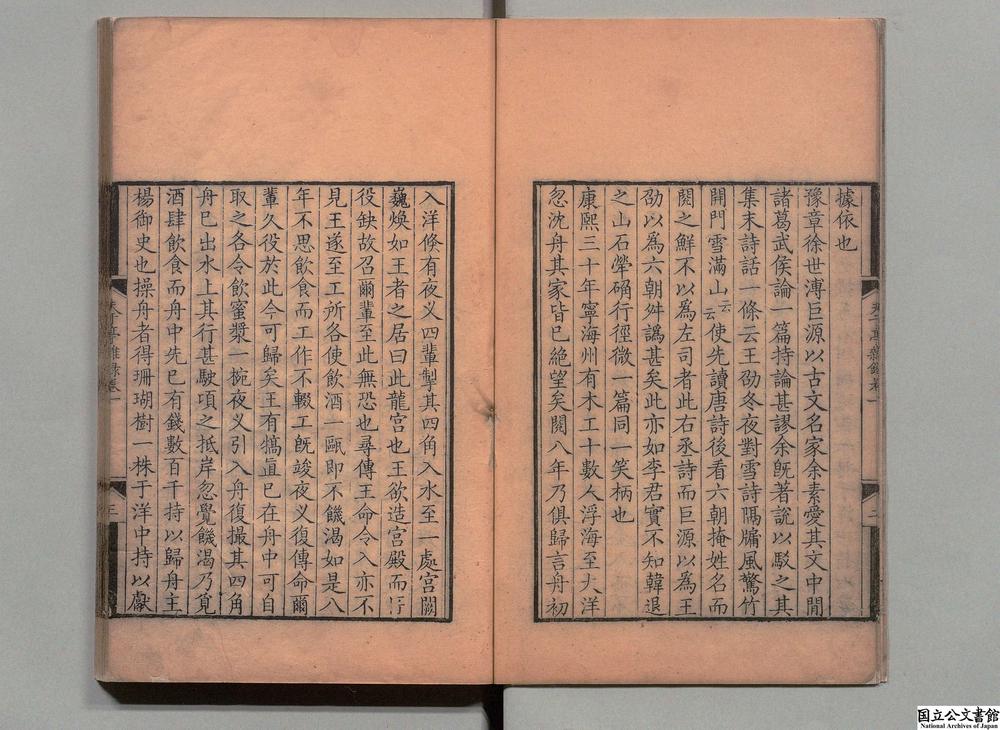 據依也
豫章徐世溥巨源以古文名家余素愛其文中間
諸葛武侯論一篇持論甚謬余旣著說以駁之其
集末詩話一條云王劭冬夜對雪詩隔牖風驚竹
開門雪滿山云云使先讀唐詩後看六朝掩姓名而
閱之鮮不以爲左司者此右丞詩而巨源以爲王
劭以爲六朝舛譌甚矣此亦如李君實不知韓退
之山石犖确行徑微一篇同一笑柄也
康熙三十年寧海州有木工十數人浮海至大洋
忽沈舟其家皆已絕望矣閱八年乃俱歸言舟初
入洋倏有夜义四輩掣其四角入水至一處宮闕
巍煥如王者之居曰此龍宫也王欲造宫殿而
役缺故召爾輩至此無恐也尋傳王命令入亦不
見王遂至工所各使飲酒一甌即不饑渴如是八
年不思飲食而工作不輟工旣竣夜义復傳命爾
輩久役於此今可歸矣王有犒直已在舟中可自
取之各令飲蜜漿一椀夜义引入舟復撮其四角
舟已出水上其行甚駛項之抵岸忽覺饑渴乃覓
酒肆飲食而舟中先已有錢數百千持以歸舟主
楊御史也操舟者得珊瑚樹一株于洋中持以獻
二
三
国立公文書館
National Archives of Japan